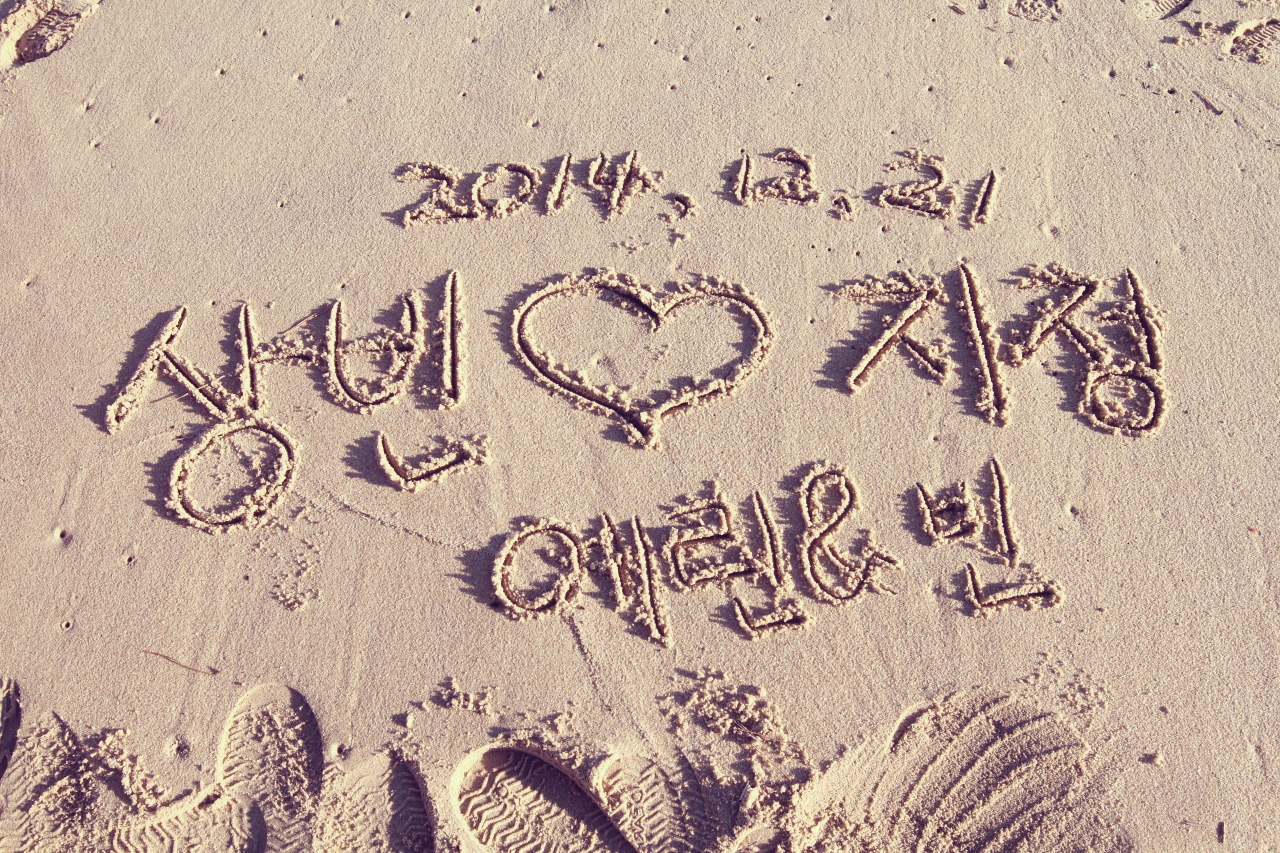 2014. 12. 21
상빈 ♡ 지정
예린 & 빈